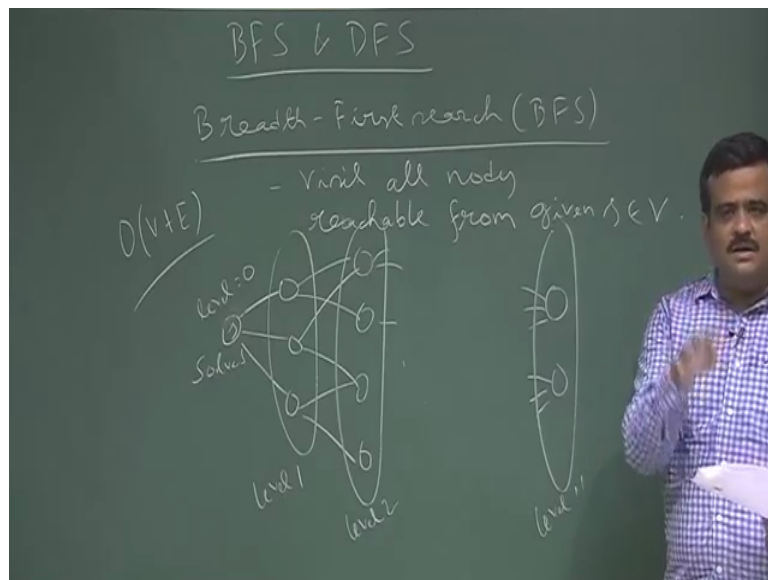 BFS & DFS
Breadth-First search (BFS)
- Visit all nody
reachable from given s ∈ V.
O(V+E)
level=0
s
level 1
level 2